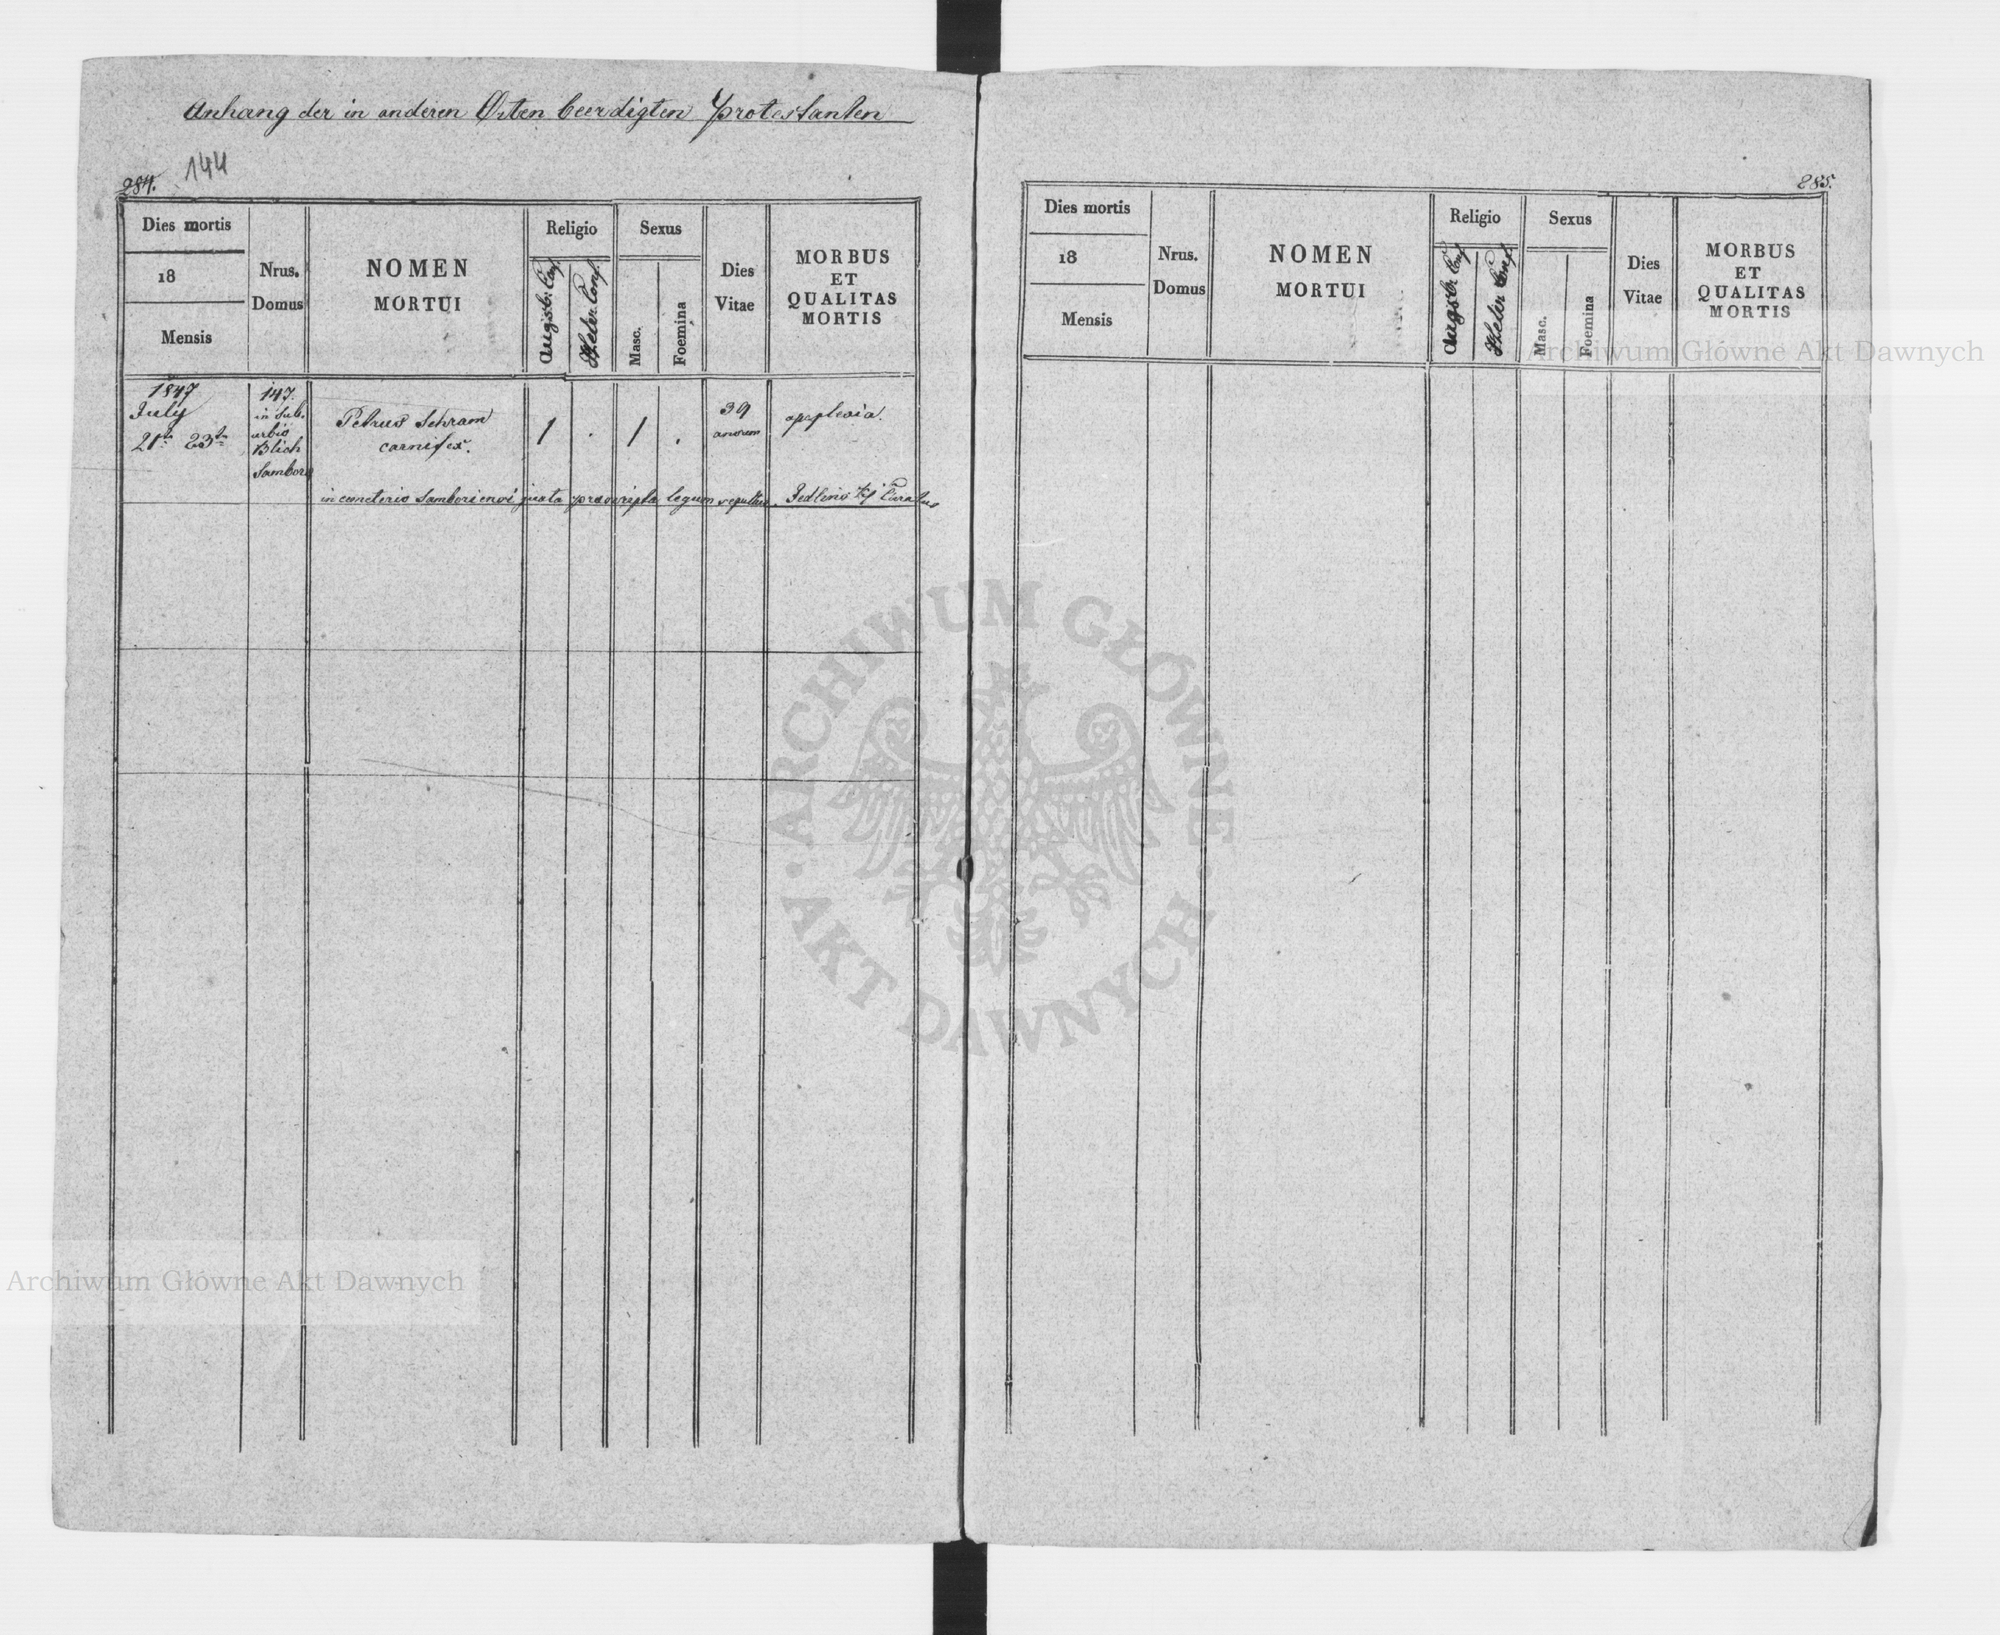 Anhang der in anderen Orten beerdigten Protestanten
144
284.
Dies mortis
18
Mensis
Nrus.
Domus
NOMEN
MORTUI
Religio
Augsb: Conf.
Helv: Conf.
Sexus
Masc.
Foemina
Dies
Vitae
MORBUS
ET
QUALITAS
MORTIS
1847
July
21ta 23ta
147.
in sub.
urbio
Blich
Sambor
Petrus Schram
carnifex.
1 . 1 .
39
annorum
apoplexia.
in cemeterio Samboriensi juxta praescripta legum sepultus. Curatus
285.
Dies mortis
18
Mensis
Nrus.
Domus
NOMEN
MORTUI
Religio
Augsb: Conf
Helv: Conf
Sexus
Masc.
Foemina
Dies
Vitae
MORBUS
ET
QUALITAS
MORTIS
Archiwum Główne Akt Dawnych
ARCHIWUM GŁÓWNE · AKT DAWNYCH ·
Archiwum Główne Akt Dawnych